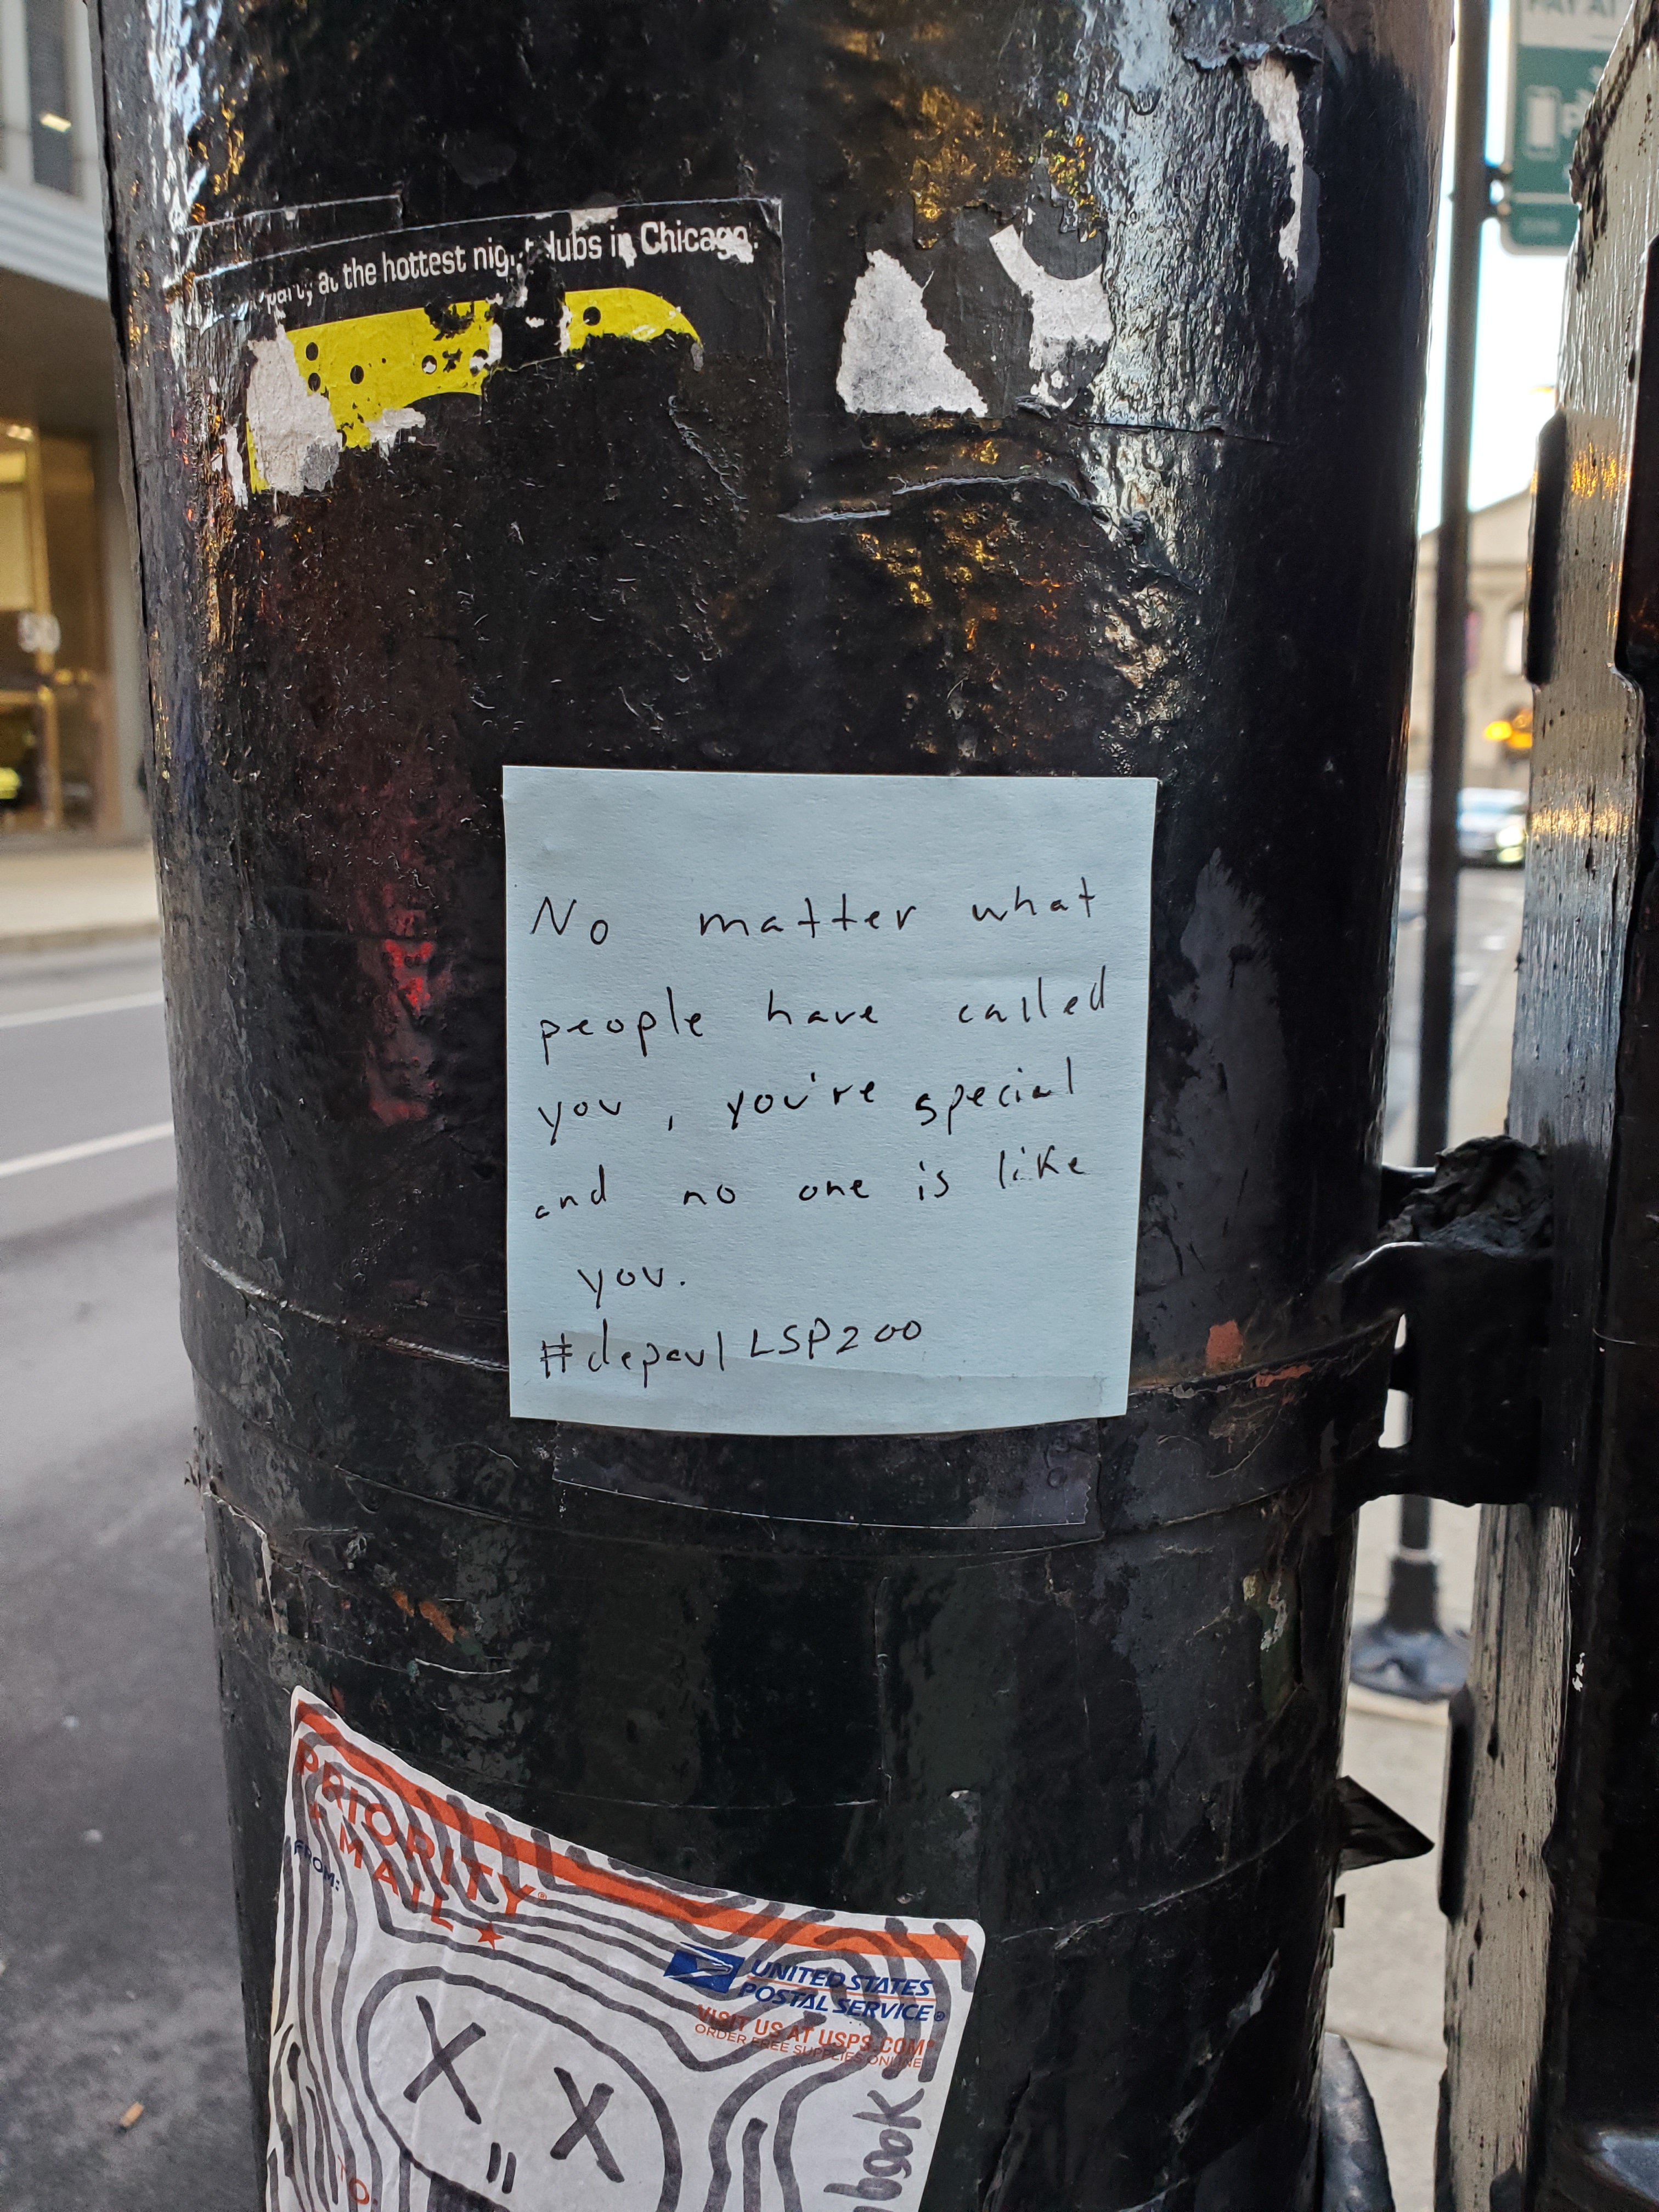 PAY AT
at the hottest nightclubs in Chicago.
No matter what
people have called
you, you're special
and no one is like
you.
#depaulLSP200
PRIORITY
MAIL
FROM:
UNITED STATES
POSTAL SERVICE®
VISIT US AT USPS.COM®
ORDER FREE SUPPLIES ONLINE
TO: